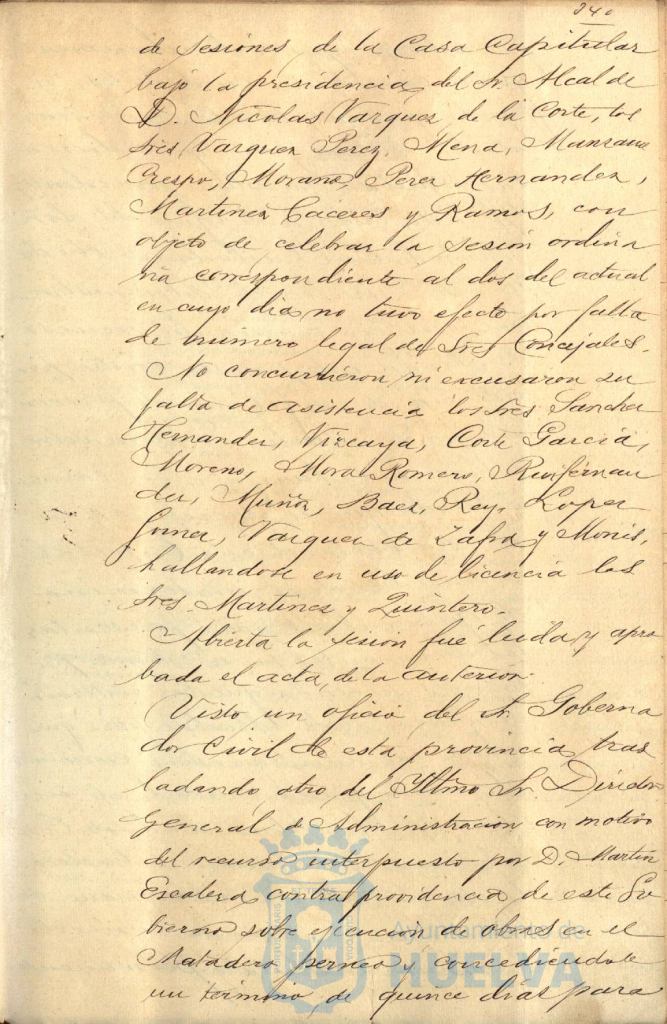 340
de sesiones de la Casa Capitular
bajo la presidencia del Sr. Alcalde
D. Nicolas Vazquez de la Corte, los
Sres Vazquez Perez, Mena, Manzano
Crespo, Morano, Perez Hernandez,
Martinez Caceres y Ramos, con
objeto de celebrar la sesión ordina
ria correspondiente al dos del actual
en cuyo dia no tuvo efecto por falta
de número legal de Sres Concejales.
No concurrieron ni excusaron su
falta de asistencia los Sres Sanchez
Hernandez, Vizcaya, Corte Garcia,
Moreno, Mora Romero, Ruifernan
dez, Muñoz, Baez, Rey, Lopez
Gomez, Vazquez de Zafra y Monis,
hallandose en uso de licencia los
Sres. Martinez y Quintero.
Abierta la sesión fué leida y apro
bada el acta de la anterior.
Visto un oficio del Sr. Goberna
dor Civil de esta provincia tras
ladando otro del Iltmo Sr. Director
General de Administracion con motivo
del recurso interpuesto por D. Martin
Escalera contra providencia de este Go
bierno sobre ejecucion de obras en el
Matadero perneo y concediendole
un término de quince dias para
Ayuntamiento de
HUELVA